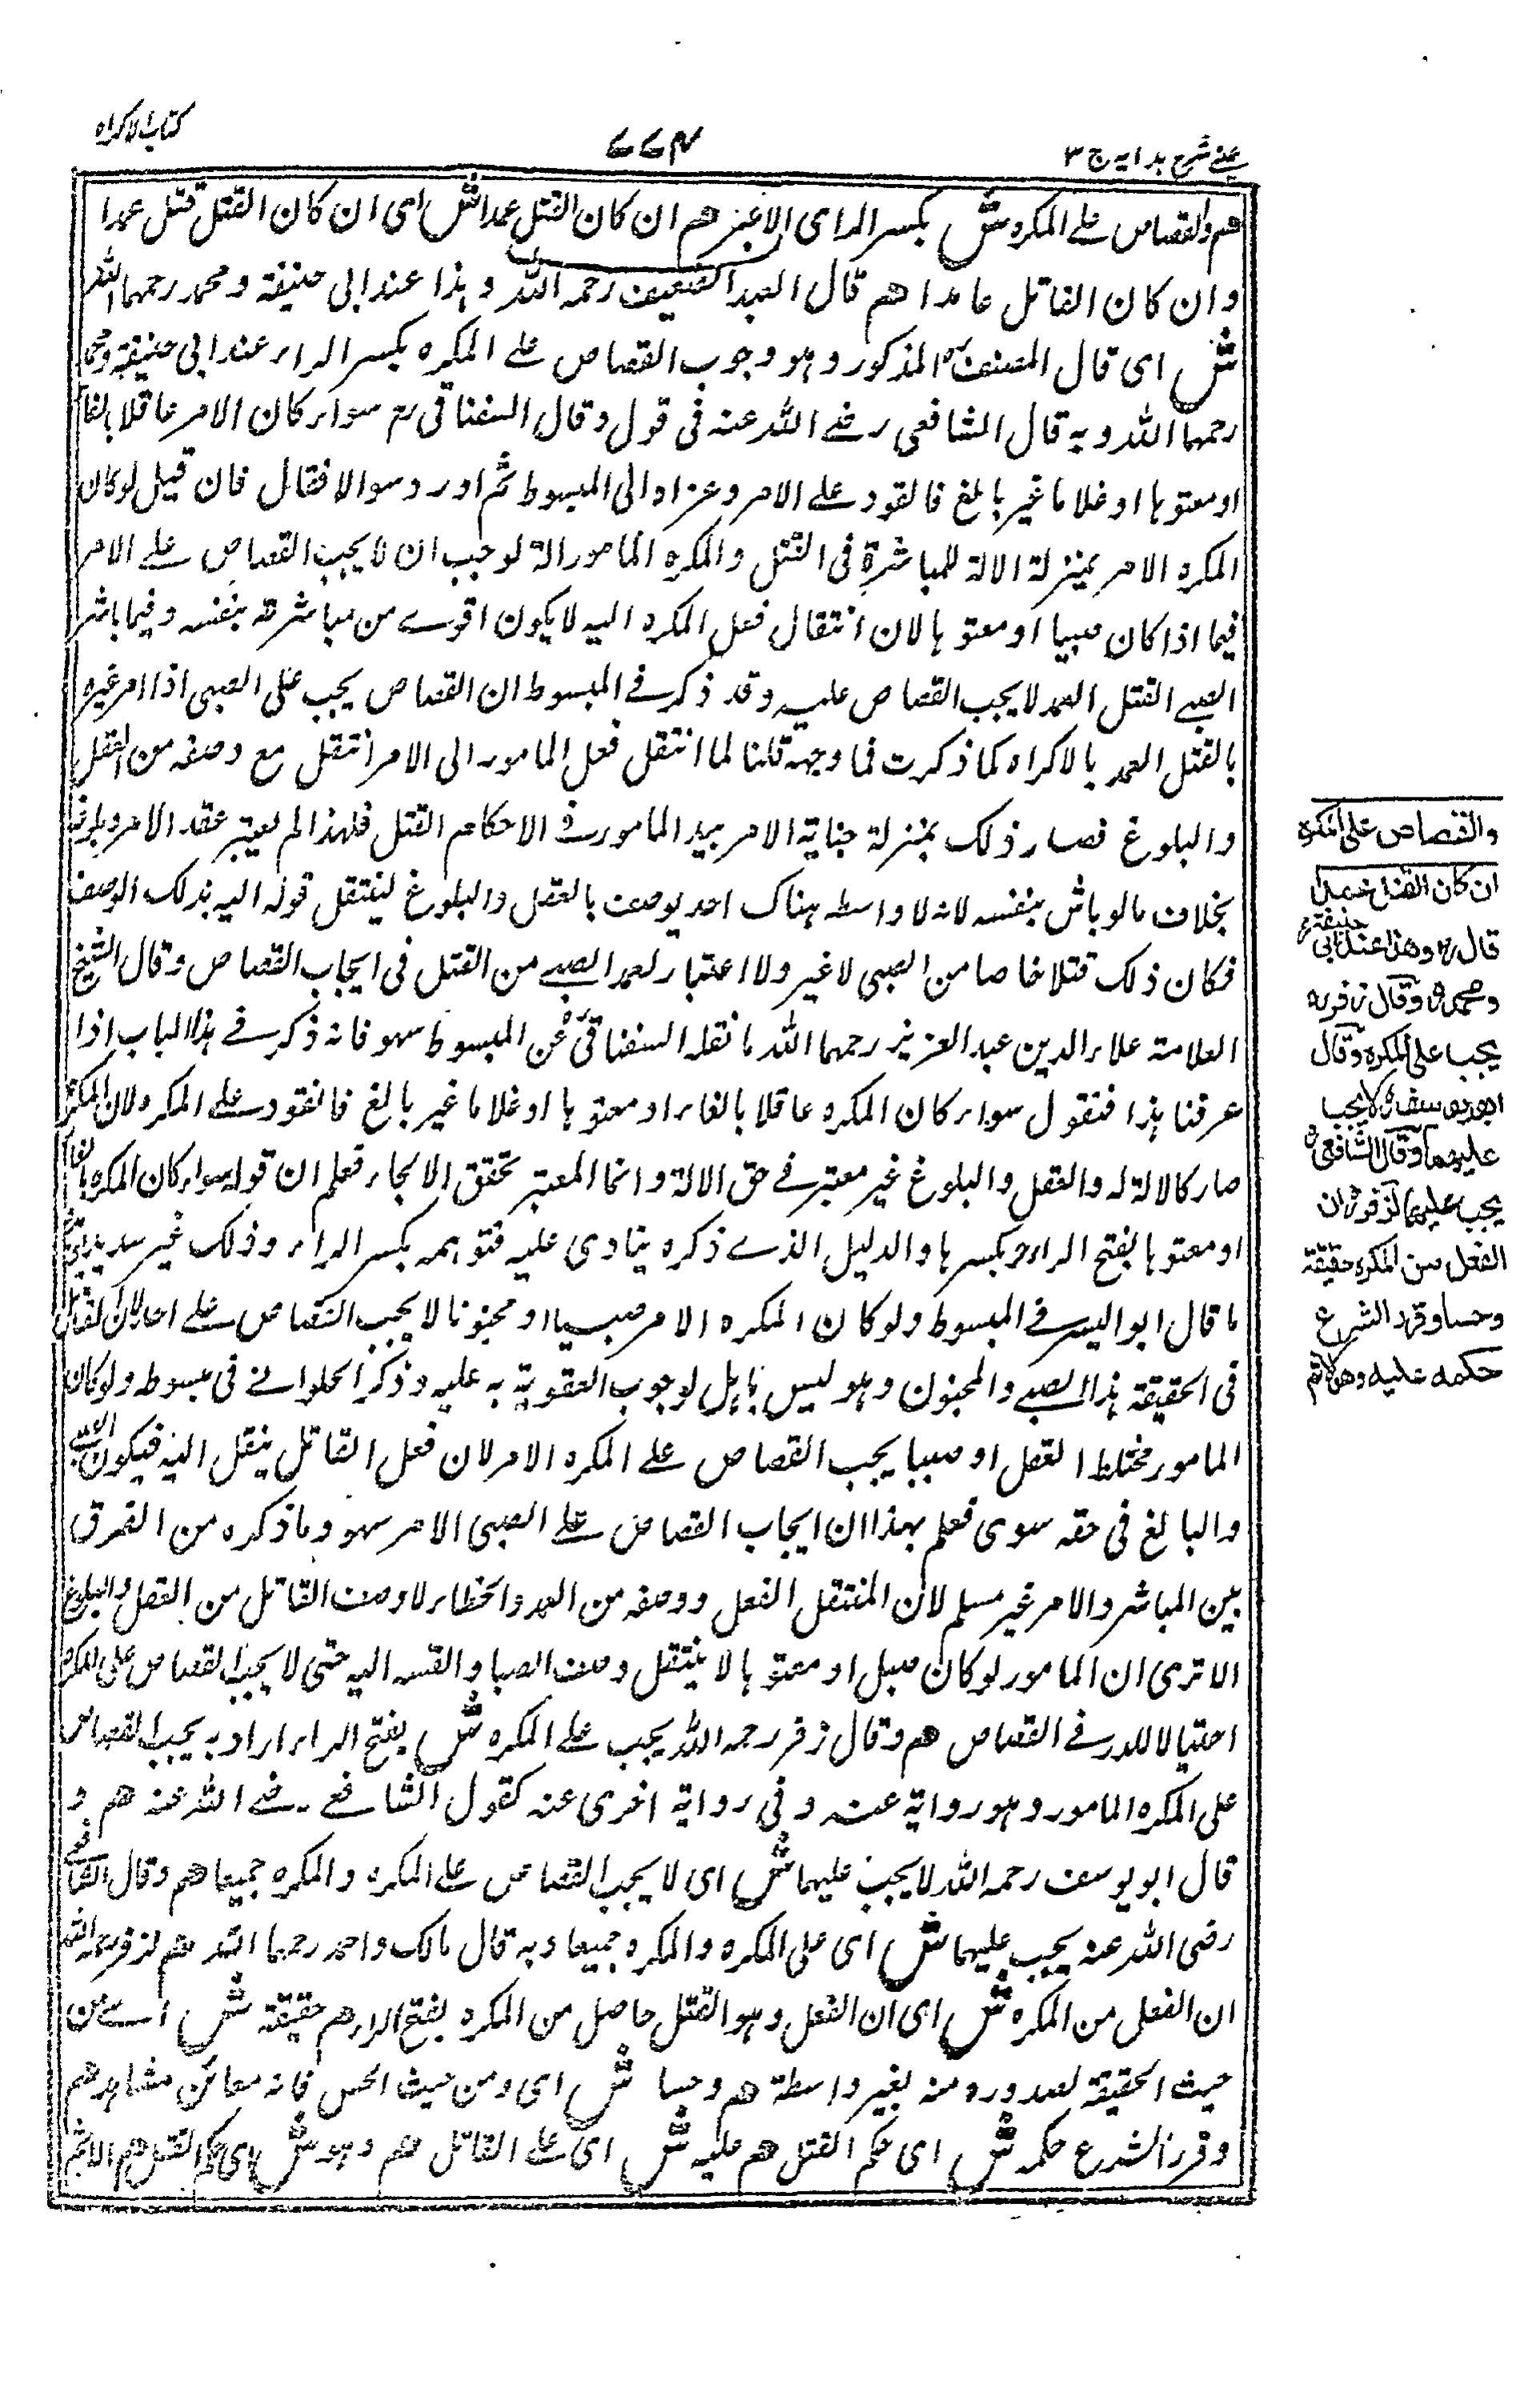 عینی شرح ہدایہ ج ۳
۷۷۴
کتاب الاکراہ
هم والقصاص علے المکرہ ش بکسر الراء ای الامر هم ان کان القتل عمدا ش ای ان کان القتل قتل عمدا
وان کان القاتل عامدا هم قال العبد الضعیف رحمہ اللہ وہذا عند ابی حنیفۃ ومحمد رحمہما اللہ
ش ای قال المصنف المذکور وہو وجوب القصاص علے المکرہ بکسر الراء عند ابی حنیفۃ ومحمد
رحمہما اللہ وبہ قال الشافعی رضے اللہ عنہ فی قول وقال السغناقی رح سواء کان الامر عاقلا بالغا
او معتوہا او غلاما غیر بالغ فالقود علے الامر وعزاہ الی المبسوط ثم اورد سوالا فقال فان قیل لو کان
المکرہ الامر بمنزلۃ الالۃ للمباشرۃ فی القتل والمکرہ المامور الۃ لوجب ان لا یجب القصاص علے الامر
فیما اذا کان صبیا او معتوہا لان انتقال فعل المکرہ الیہ لا یکون اقوے من مباشرتہ بنفسہ وفیما باشر
الصبے القتل العمد لا یجب القصاص علیہ وقد ذکر فے المبسوط ان القصاص یجب علی الصبی اذا امر غیرہ
بالقتل العمد بالاکراہ کما ذکرت فما وجہہ قلنا لما انتقل فعل المامور الی الامر انتقل مع وصفہ من العقل
والبلوغ فصار ذلک بمنزلۃ جنایۃ الامر بید المامور فے الاحکام القتل فلہذا لم یعتبر عقد الامر وبلوغہ
بخلاف ما لو باش بنفسہ لانہ لا واسطہ ہناک احد یوصف بالعقل والبلوغ لینتقل قولہ الیہ بذلک الوصف
فکان ذلک قتلا خاصا من الصبی لا غیر ولا اعتبار لعمد الصبے من القتل فی ایجاب القصاص وقال الشیخ
العلامۃ علاء الدین عبد العزیز رحمہما اللہ ما نقلہ السغناقی عن المبسوط سہو فانہ ذکر فے ہذا الباب اذا
عرفنا ہذا فنقول سواء کان المکرہ عاقلا بالغا او معتوہا او غلاما غیر بالغ فالقود علے المکرہ لان المکرہ
صار کالالۃ لہ والعقل والبلوغ غیر معتبر فے حق الالۃ وانما المعتبر تحقق الالجاء فعلم ان قولہ سواء کان المکرہ بالغا
او معتوہا بفتح الراء لا بکسرہا والدلیل الذے ذکرہ ینادی علیہ فتوہمہ بکسر الراء وذلک غیر سدید
ما قال ابو الیسر فے المبسوط ولو کان المکرہ الامر صبیا او مجنونا لا یجب القصاص علے احد لان القاتل
فی الحقیقۃ ہذا الصبے والمجنون وہو لیس باہل لوجوب العقوبۃ بہ علیہ وذکر الحلوانے فی مبسوطہ ولو کان
المامور مختلط العقل او صبیا یجب القصاص علے المکرہ الامر لان فعل القاتل ینقل الیہ فیکون الصبے
والبالغ فی حقہ سوی فعلم بہذا ان ایجاب القصاص علے الصبی الامر سہو وما ذکرہ من الفرق
بین المباشر والامر غیر مسلم لان المنتقل الفعل ووصفہ من العمد والخطاء لا وصف القاتل من العقل والبلوغ
الا تری ان المامور لو کان صبیا او معتوہا لا ینتقل وصف الصبا والقسہ الیہ حتی لا یجب القصاص علی المکرہ
احتیالا للدرء فے القصاص هم وقال زفر رحمہ اللہ یجب علے المکرہ ش بفتح الراء اراد بہ یجب القصاص
علی المکرہ المامور وہو روایۃ عنہ وفی روایۃ اخری عنہ کقول الشافعے رضے اللہ عنہ هم و
قال ابو یوسف رحمہ اللہ لا یجب علیہما ش ای لا یجب القصاص علے المکرہ والمکرہ جمیعا هم وقال الشافعے
رضی اللہ عنہ یجب علیہما ش ای علی المکرہ والمکرہ جمیعا وبہ قال مالک واحمد رحمہما اللہ هم لزفر رحمہ اللہ
ان الفعل من المکرہ ش ای ان الفعل وہو القتل حاصل من المکرہ بفتح الراء هم حقیقۃ ش اے من
حیث الحقیقۃ لصدورہ منہ بغیر واسطۃ هم وحسا ش ای ومن حیث الحس فانہ معائن مشاہد هم
وقرر الشرع حکمہ ش ای حکم القتل هم علیہ ش ای علے القاتل هم وہو ش ای حکم القتل هم الاثم
والقصاص علی المکرہ
ان کان القتل عمدا
قال رح وهذا عند ابی حنیفۃ
ومحمد رح وقال زفر رح
یجب علی المکرہ وقال
ابو یوسف رح لا یجب
علیهما وقال الشافعی رح
یجب علیهما لزفر رح ان
الفعل من المکرہ حقیقۃ
وحسا وقرر الشرع
حکمہ علیہ وهو الاثم